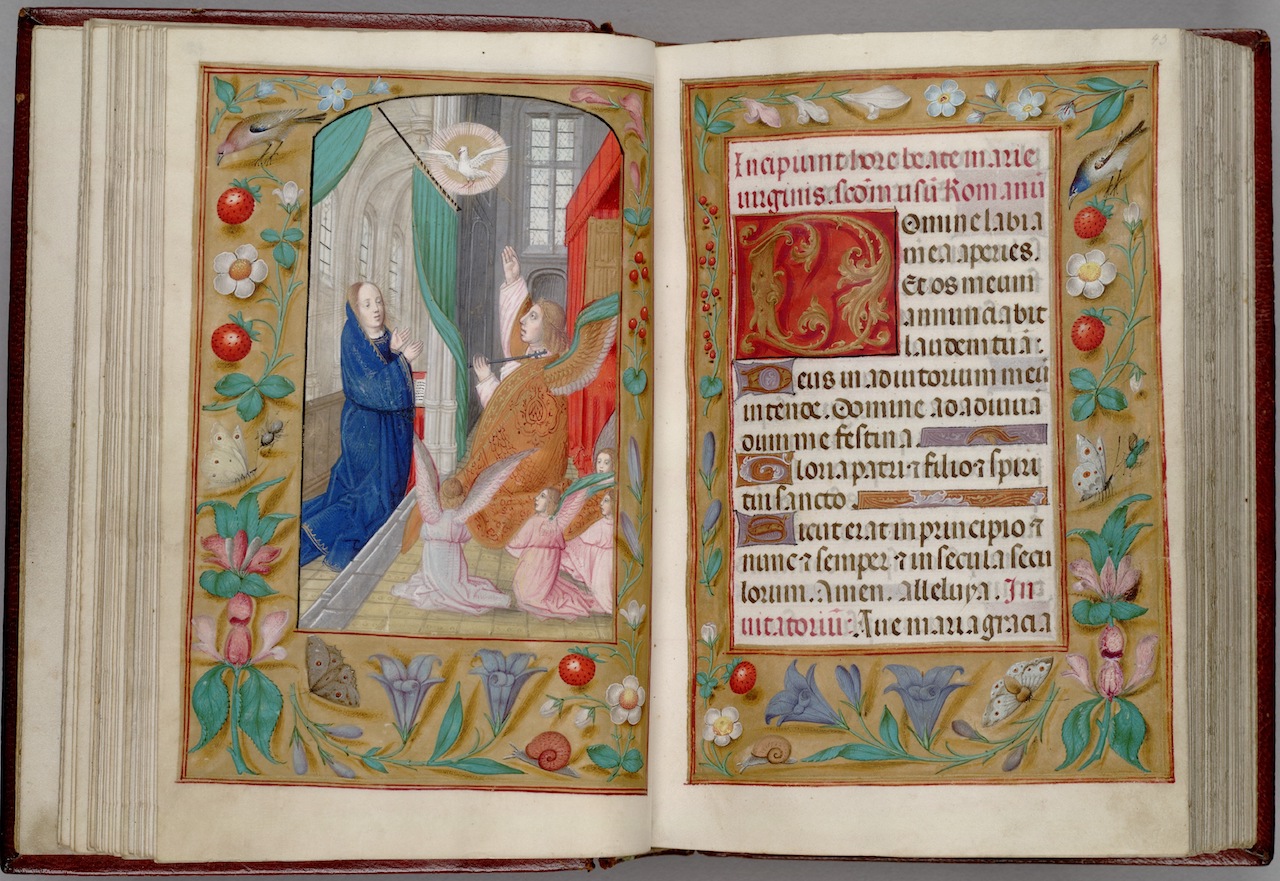 43
Incipiunt hore beate marie
uirginis. scdm usū Romanū
Domine labia
mea aperies.
Et os meum
annunciabit
laudem tuā:
Deus in adiutorium meū
intende. Domine ad adiuua
dum me festina.
Gloria patri ⁊ filio ⁊ spiri
tui sancto.
Sicut erat in principio ⁊
nunc ⁊ semper ⁊ in secula secu
lorum. Amen. alleluya. In
uitatoriū: Aue maria gracia